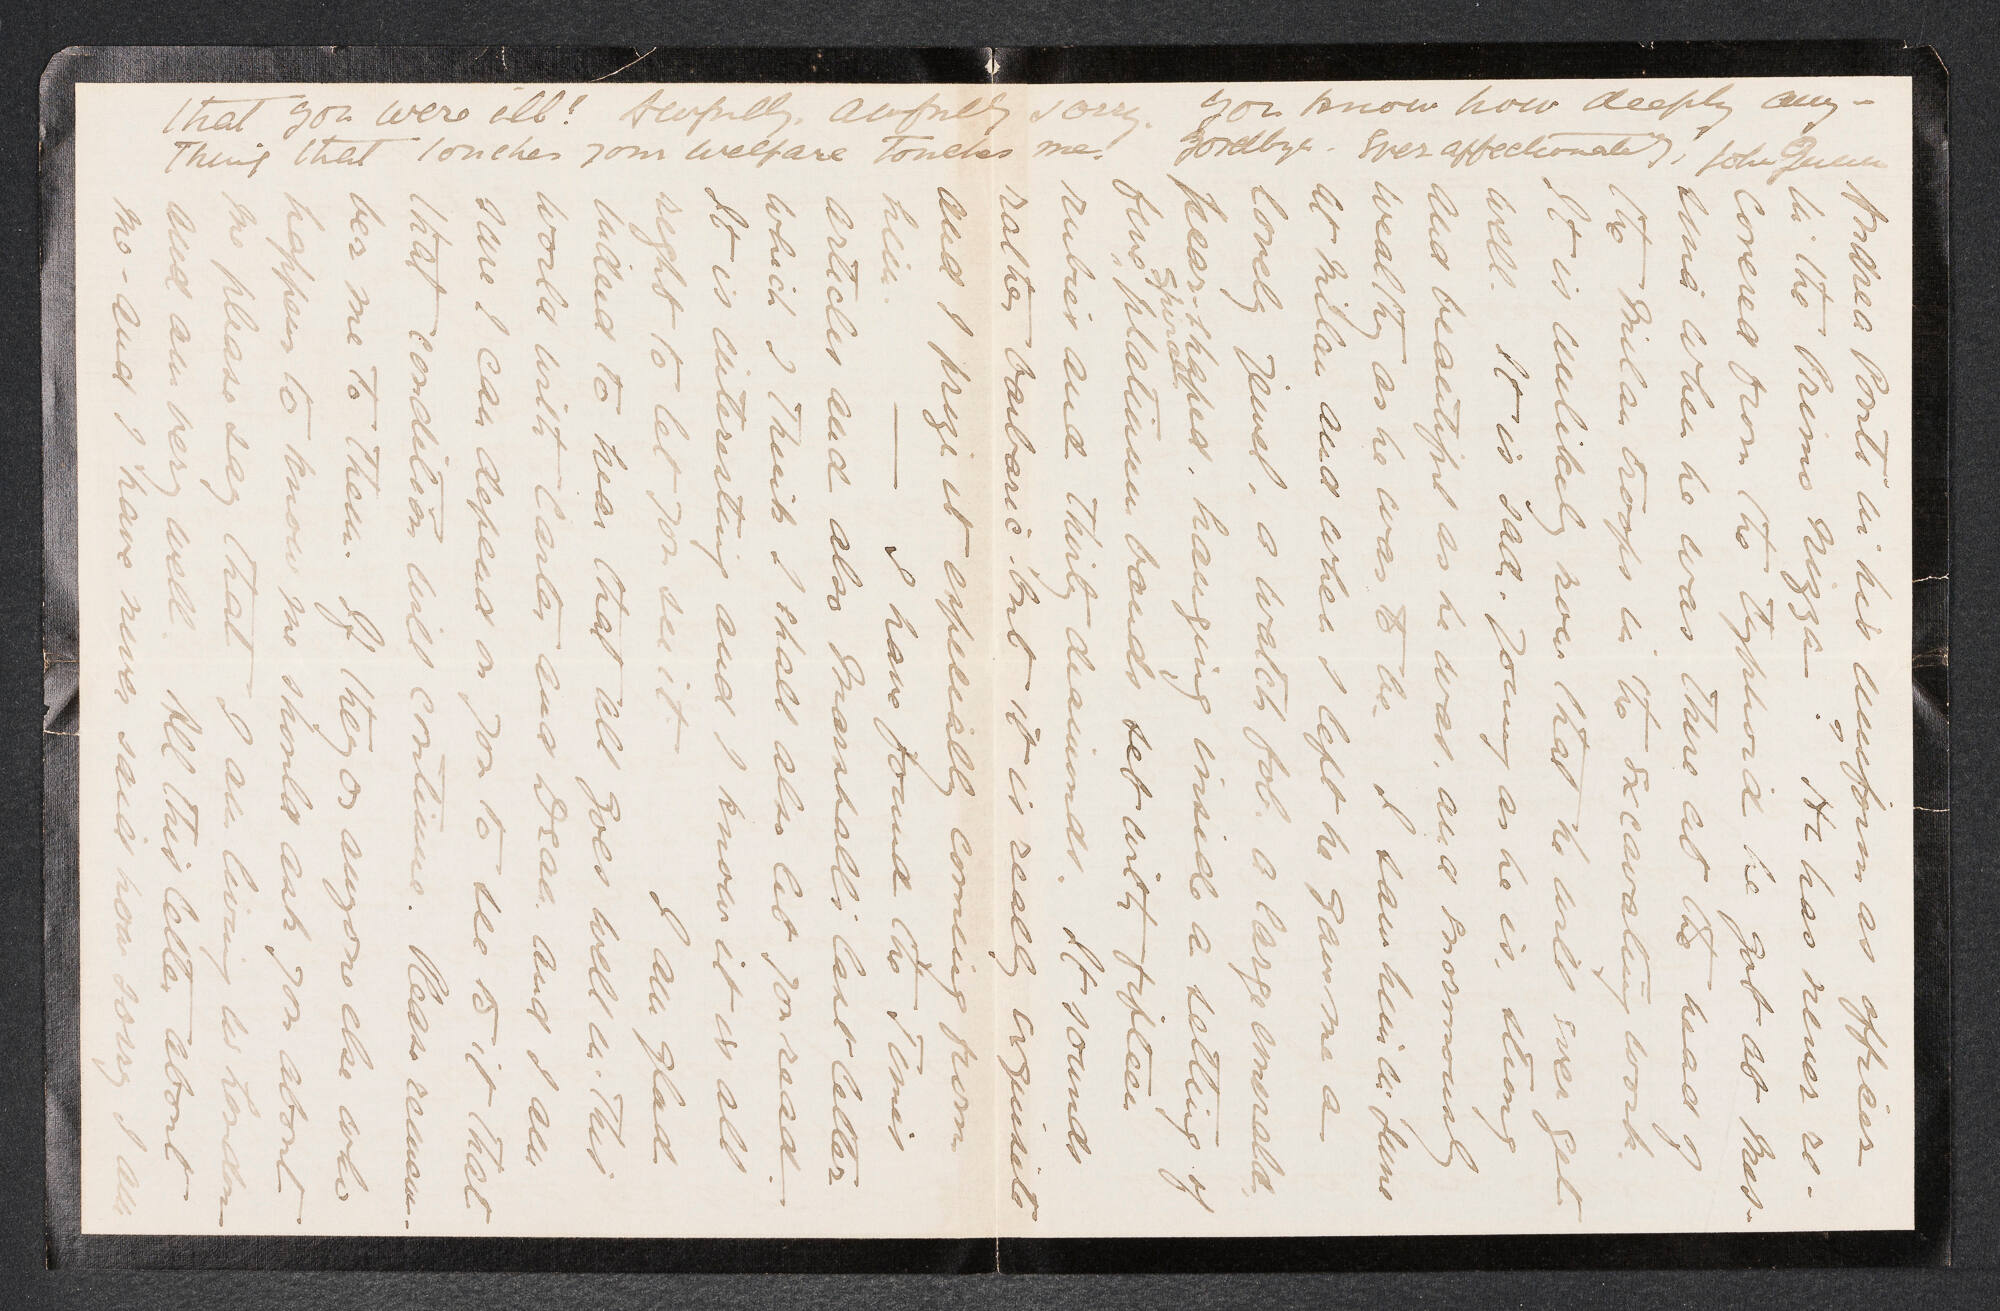 Andrea Ponti in his uniform as officer
in the Primo Nizza —. He has never re-
covered from the typhoid he got at Mes-
sina when he was there at the head of
the Milan troops in the excavating work.
It is unlikely now that he will ever get
well. It is sad. Young as he is, strong
and beautiful as he was, and enormously
wealthy as he was to be. I saw him in June
at Milan and when I left he gave me a
lovely jewel, a watch fob. a large emerald,
pear-shaped, hanging inside a setting of
fine, spiral platinum bands set with fifteen
rubies and thirty diamonds. It sounds
rather barbaric but it is really exquisite
and I prize it especially coming from
him. — I have found the Times
articles and also Marshall's last letter
which I think I shall also let you read.
It is interesting and I know it is all
right to let you see it. I am glad
indeed to hear that all goes well in this
world with Carter and Dean. and I am
sure I can depend on you to see to it that
that condition will continue. Please remem-
ber me to them. If they or anyone else who
happen to know me should ask you about
me please say that I am living in London
and am very well. All this letter about
me - and I have never said how sorry I am
that you were ill! Awfully, awfully sorry. You know how deeply any-
thing that touches your welfare touches me. Goodbye. Ever affectionately, John